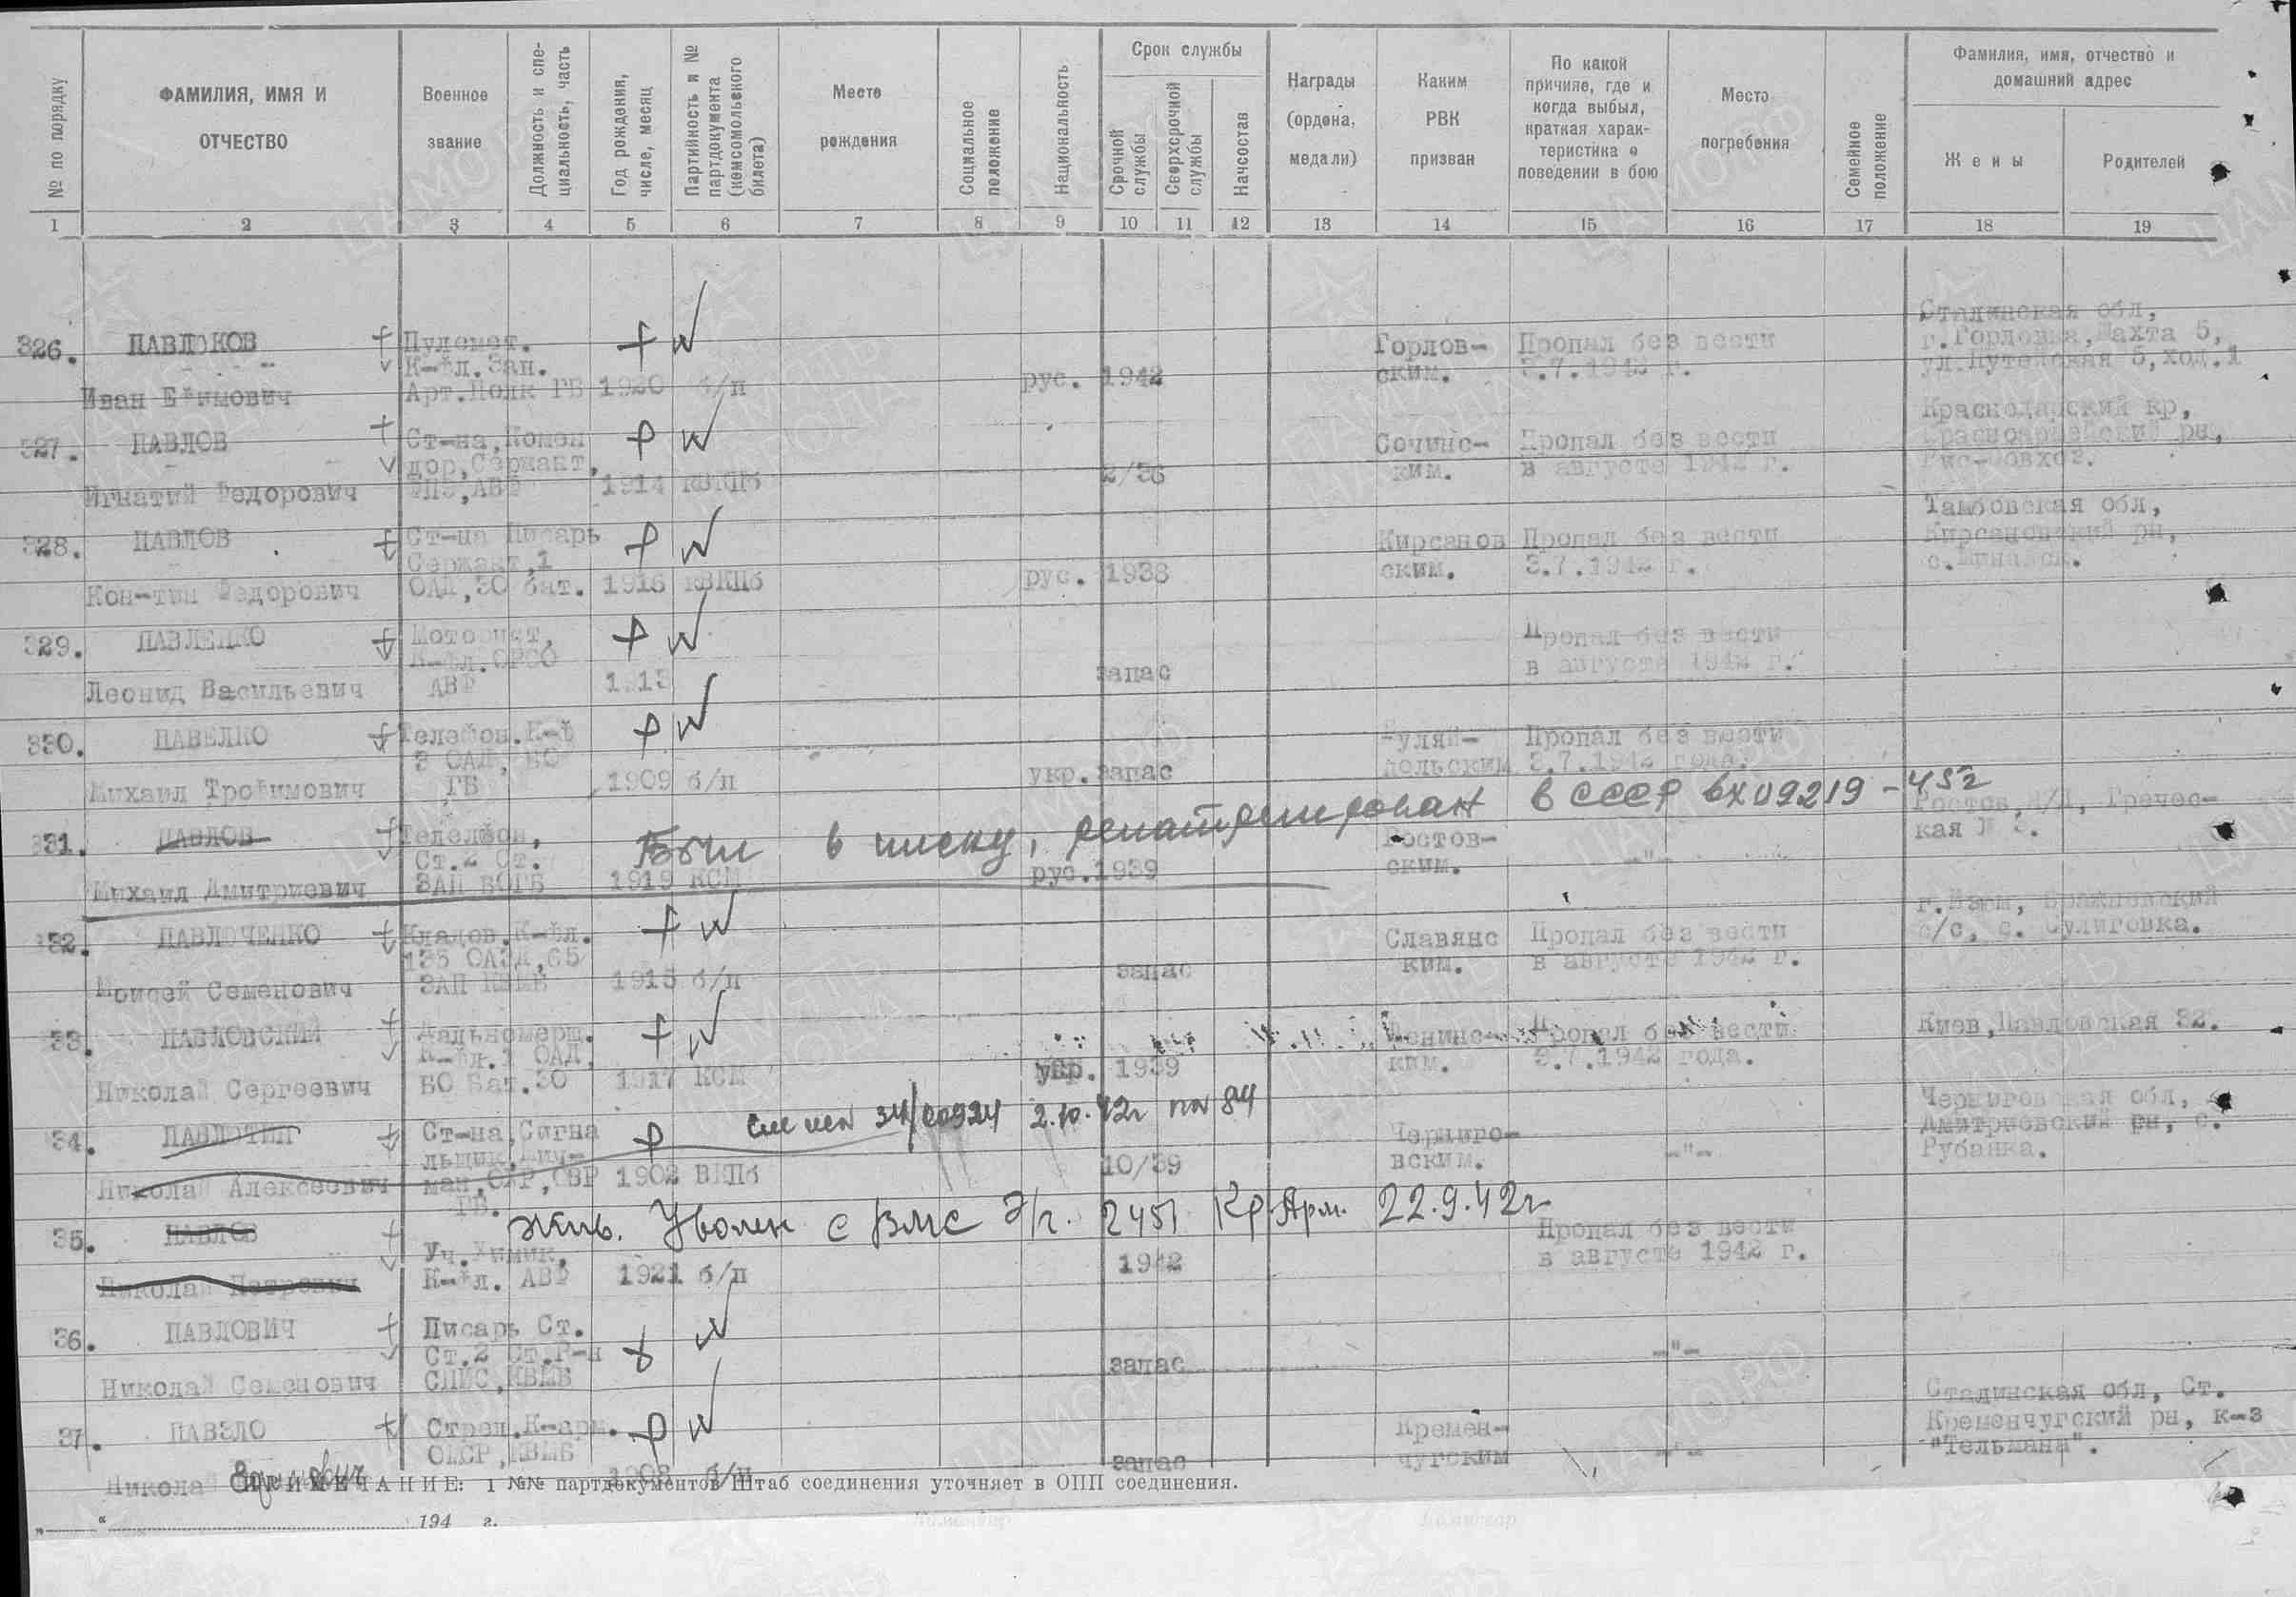 № по порядку
ФАМИЛИЯ, ИМЯ И ОТЧЕСТВО
Военное звание
Должность и специальность, часть
Год рождения, число, месяц
Партийность и № партдокумента (комсомольского билета)
Место рождения
Социальное положение
Национальность
Срок службы
Срочной службы
Сверхсрочной службы
Начсостав
Награды (ордена, медали)
Каким РВК призван
По какой причине, где и когда выбыл, краткая характеристика о поведении в бою
Место погребения
Семейное положение
Фамилия, имя, отчество и домашний адрес
Жены
Родителей
1 2 3 4 5 6 7 8 9 10 11 12 13 14 15 16 17 18 19
326. ПАВЛЮКОВ
Иван Ефимович
Пулемет.
К-фл. Зен.
Арт. Полк ГБ 1920 б/п рус. 1942
Горлов-
ским.
Пропал без вести
3.7.1942 г.
Сталинская обл,
г. Горловка, Шахта 5,
ул. Путейская 5, ход. 1
327. ПАВЛОВ
Игнатий Федорович
Ст-на, Комен
дор, Сержант,
АВФ 1914 КВКПб 2/36
Сочинс-
ким.
Пропал без вести
в августе 1942 г.
Краснодарский кр,
Красноармейский рн,
Рис-совхоз.
328. ПАВЛОВ
Кон-тин Федорович
Ст-на Писарь
Сержант, 1
ОАД, 30 бат. 1916 КВКПб рус. 1938
Кирсанов
ским.
Пропал без вести
3.7.1942 г.
Тамбовская обл,
Кирсановский рн,
329. ПАВЛЕНКО
Леонид Васильевич
Моторист,
К-фл.
АВФ 1913 запас
Пропал без вести
в августе 1942 г.
330. ПАВЕЛКО
Михаил Трофимович
Телефон. К-ф
3 ОАД, БО
ГБ 1909 б/п укр. запас
Гуляй-
польским
Пропал без вести
3.7.1942 года.
331. ПАВЛОВ
Михаил Дмитриевич
Телефон,
Ст. 2 Ст.
ЗАП БОГБ 1919 КСМ рус. 1939
Был в плену, репатриирован в СССР вх 09219-45г
Ростов-
ским.
-"-
Ростов, Н/Д, Гречес-
кая
332. ПАВЛЮЧЕНКО
Моисей Семенович
Кладов. К-фл.
135 ОАЗД, 65
ЗАП КВМБ 1915 б/п запас
Славянс
ким.
Пропал без вести
в августе 1942 г.
г. Изюм,
с/с, с. Сулиговка.
33. ПАВЛОВСКИЙ
Николай Сергеевич
Дальномерщ.
К-фл. 1 ОАД,
БО Бат. 30 1917 КСМ укр. 1939
Ленинс-
ким.
Пропал без вести
3.7.1942 года.
Киев, Павловская 32.
34.
Николай Алексеевич
Ст-на, Сигна
льщик, Мич-
ман, ОХР, СВР 1902 ВКПб 10/39
ГБ.
2.10.42г
Черниго-
вским.
-"-
Черниговская обл,
Дмитриевский рн, с.
Рубанка.
35. ПАВЛОВ
Николай Петрович
Жив. Уволен с ВМС Э/г. 2451 Кр Арм. 22.9.42г
Уч. Химик,
К-фл. АВФ 1921 б/п 1942
Пропал без вести
в августе 1942 г.
36. ПАВЛОВИЧ
Николай Семенович
Писарь Ст.
Ст. 2 Ст. Р-н
КВМБ запас
-"-
37. ПАВЗЛО
Николай
Стрел. К-арм.
КВМБ 1908 б/п запас
Кремен-
чугским
-"-
Сталинская обл, Ст.
Кременчугский рн, к-з
"Тельмана".
ПРИМЕЧАНИЕ: 1 №№ партдокументов Штаб соединения уточняет в ОПП соединения.
" " 194 г.
Командир
Комиссар